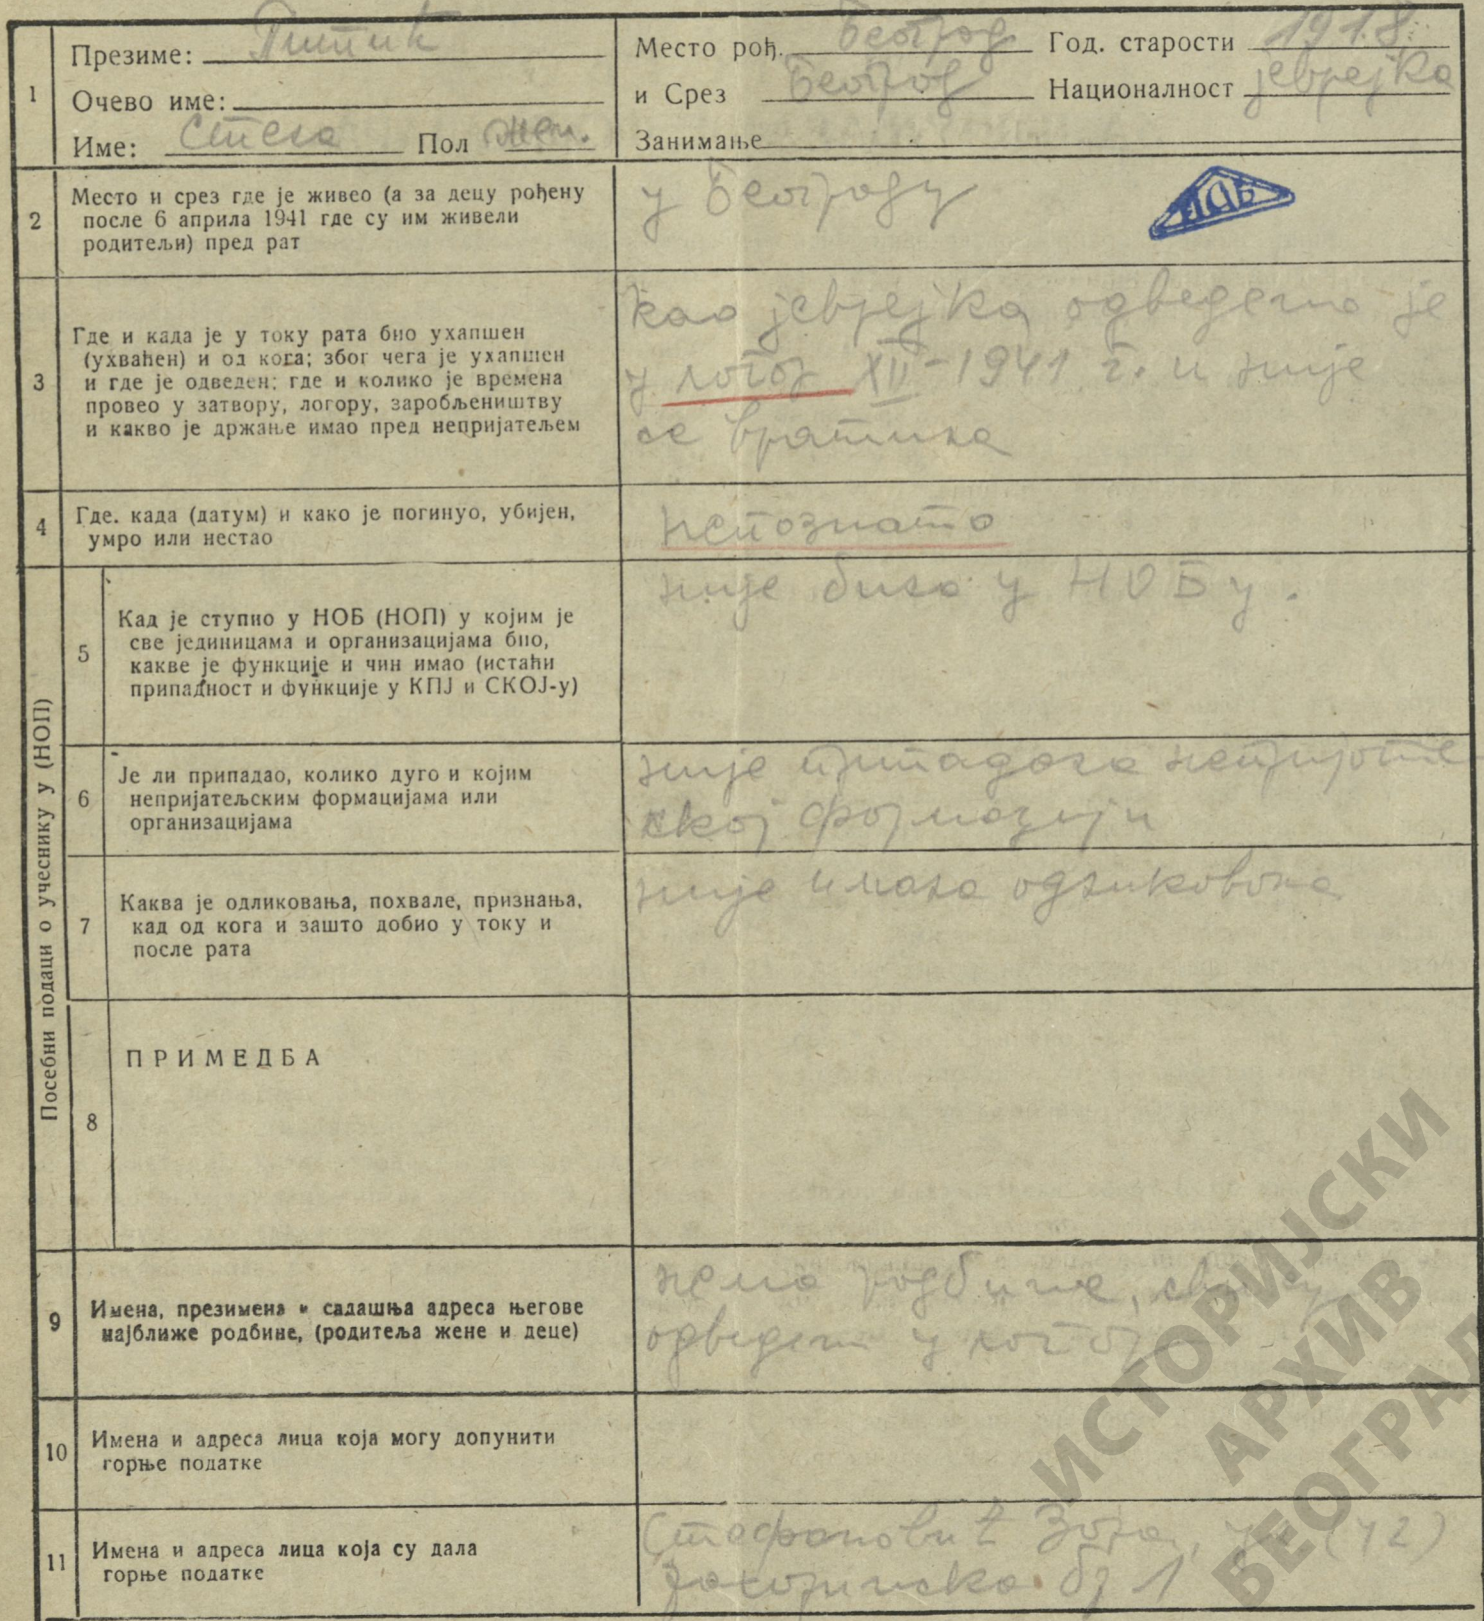 1
Презиме:
Очево име:
Име: Стела Пол жен.
Место рођ. Београд Год. старости 1918.
и Срез Београд Националност јеврејка
Занимање
2
Место и срез где је живео (а за децу рођену
после 6 априла 1941 где су им живели
родитељи) пред рат
у Београду
3
Где и када је у току рата био ухапшен
(ухваћен) и од кога; због чега је ухапшен
и где је одведен; где и колико је времена
провео у затвору, логору, заробљеништву
и какво је држање имао пред непријатељем
као јеврејка одведена је
у логор XII-1941 г. и није
се вратила
4
Где. када (датум) и како је погинуо, убијен,
умро или нестао
непознато
Посебни подаци о учеснику у (НОП)
5
Кад је ступио у НОБ (НОП) у којим је
све јединицама и организацијама био,
какве је функције и чин имао (истаћи
припадност и функције у КПЈ и СКОЈ-у)
није била у НОБу.
6
Је ли припадао, колико дуго и којим
непријатељским формацијама или
организацијама
није припадала непријате
ској формацији
7
Каква је одликовања, похвале, признања,
кад од кога и зашто добио у току и
после рата
није имала одликовања
8
ПРИМЕДБА
9
Имена, презимена и садашња адреса његове
најближе родбине, (родитеља жене и деце)
нема родбине, сви су
одведени у логор
10
Имена и адреса лица која могу допунити
горње податке
11
Имена и адреса лица која су дала
горње податке
Стефановић Зора (42)
бр 1
ИСТОРИЈСКИ
АРХИВ
БЕОГРАД